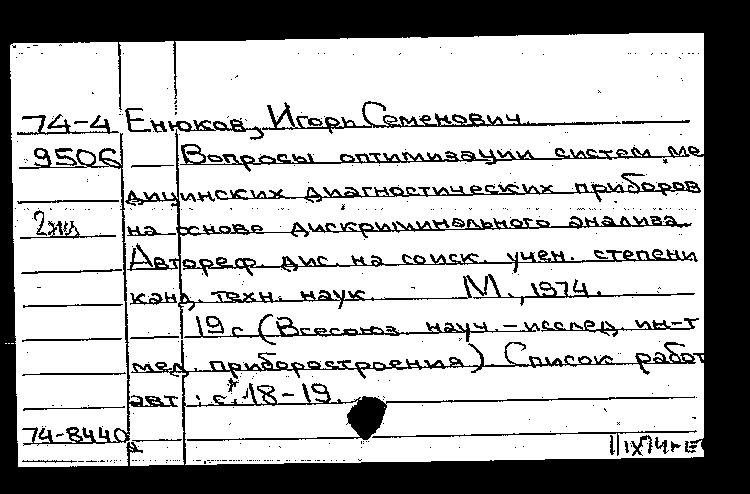 74-4 Енюков, Игорь Семенович
9506 Вопросы оптимизации систем, ме
дицинских диагностических приборов
2экз на основе дискриминального анализа
Автореф. дис. на соиск. учен. степени
канд. техн. наук. М., 1974.
19 с (Всесоюз. науч.-исслед. ин-т
мед. приборостроения). Список работ
авт.: с. 18-19.
74-8440